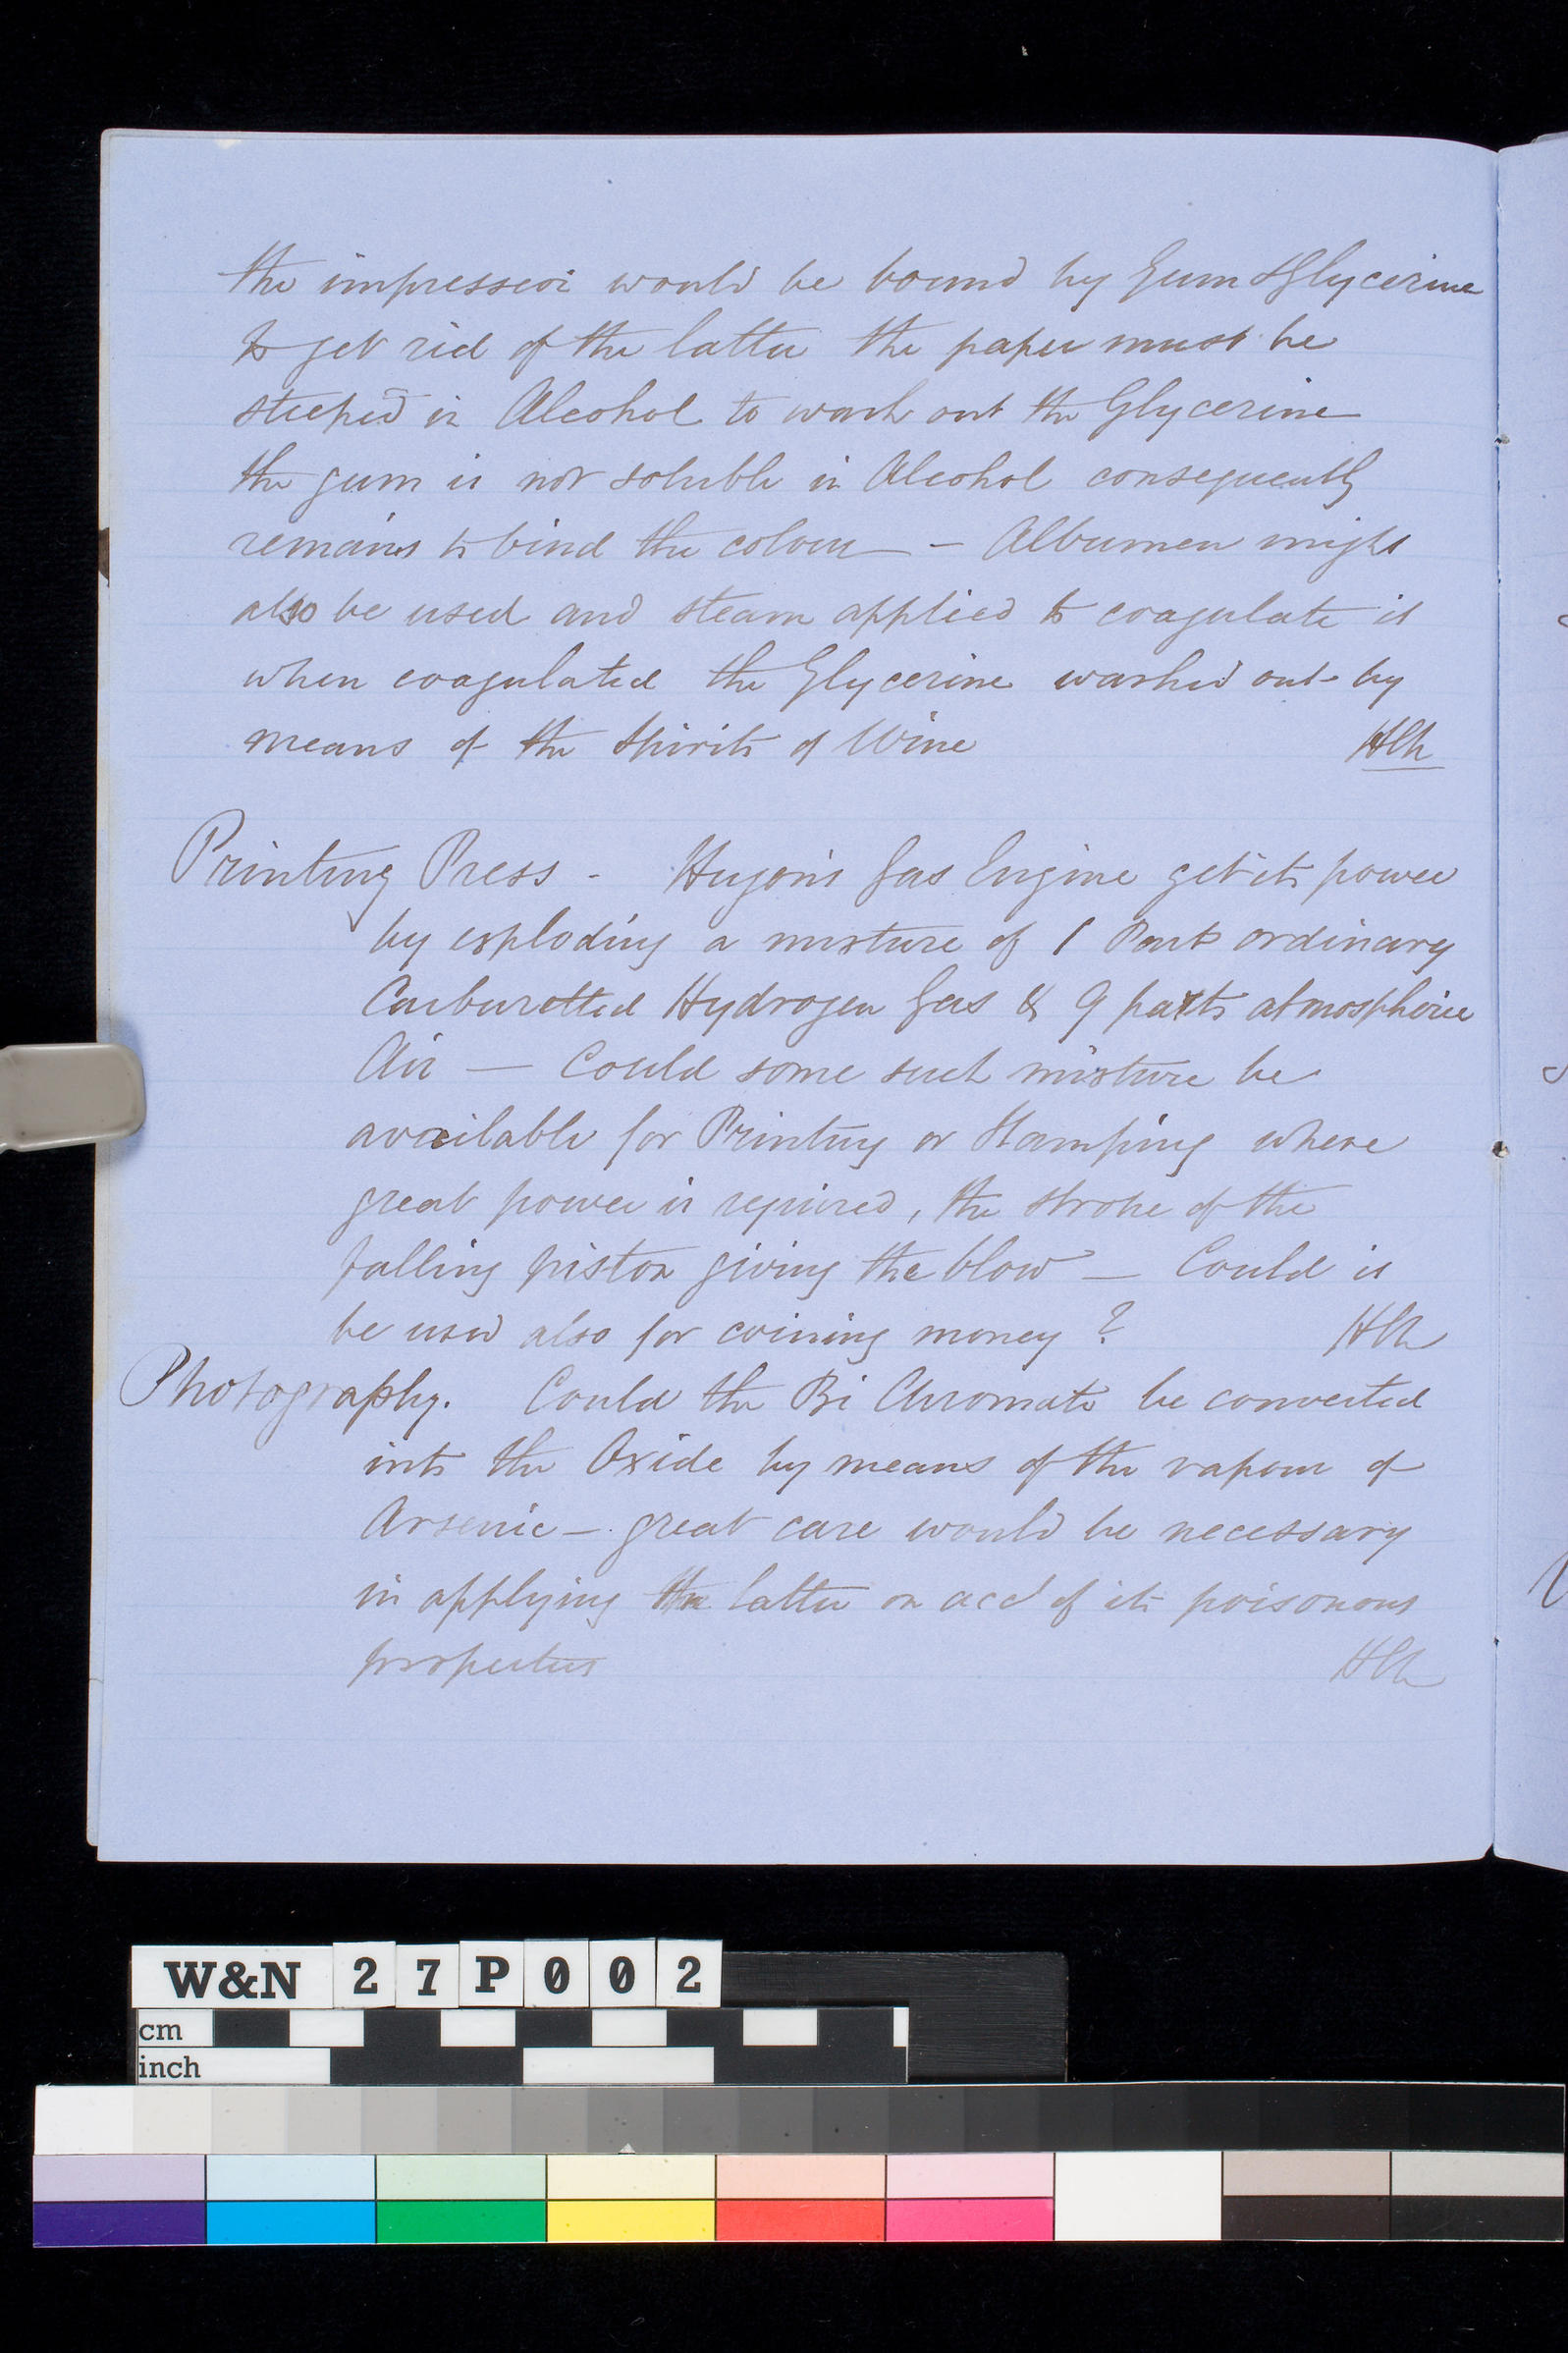 the impression would be bound by Gum & Glycerine
to get rid of the latter the paper must be
steeped in Alcohol to wash out the Glycerine
the gum is not soluble in Alcohol consequently
remains to bind the colour — Albumen might
also be used and steam applied to coagulate it
when coagulated the Glycerine washed out by
means of the Spirits of Wine HCN
Printing Press - Hugon's Gas Engine get its power
by exploding a mixture of 1 Part ordinary
Carburetted Hydrogen Gas & 9 parts atmospheric
Air — Could some such mixture be
available for Printing or Stamping where
great power is required, the stroke of the
falling piston giving the blow — Could it
be used also for coining money ? HCN
Photography. Could the Bi Chromate be converted
into the Oxide by means of the vapour of
Arsenic — great care would be necessary
in applying the latter on acct of its poisonous
properties HCN
W&N 27P002
cm
inch